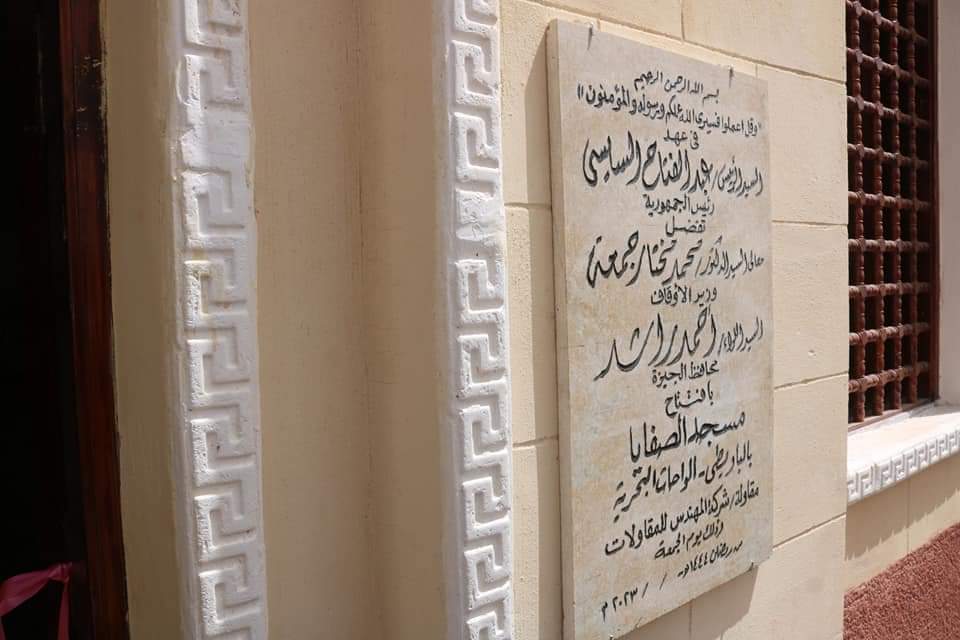 بسم الله الرحمن الرحيم
«وقل اعملوا فسيرى الله عملكم ورسوله والمؤمنون»
فى عهد
السيد الرئيس/ عبد الفتاح السيسى
رئيس الجمهورية
تفضل
معالى السيد الدكتور/ محمد مختار جمعة
وزير الأوقاف
السيد اللواء/ أحمد راشد
محافظ الجيزة
بافتتاح
مسجد الصفايا
بالباويطى - الواحات البحرية
مقاولة/ شركة المهندس للمقاولات
وذلك يوم الجمعة
من رمضان ١٤٤٤هـ - / / ٢٠٢٣ م